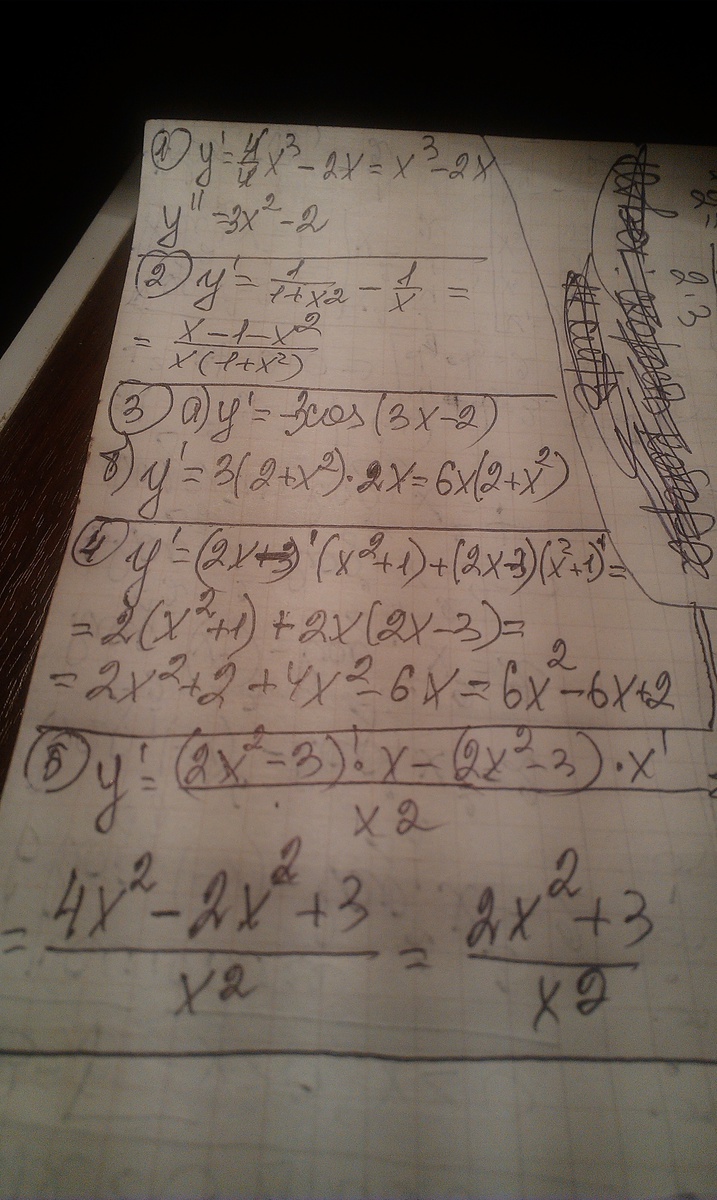 1) y' = 4/4 x³ - 2x = x³ - 2x
y'' = 3x² - 2
2) y' = 1/(1+x2) - 1/x =
= (x-1-x²)/(x(1+x²))
3) а) y' = -3cos(3x-2)
в) y' = 3(2+x²)·2x = 6x(2+x²)
4) y' = (2x-3)'(x²+1)+(2x-3)(x²+1)' =
= 2(x²+1)+2x(2x-3) =
= 2x²+2+4x²-6x = 6x²-6x+2
5) y' = ((2x²-3)'·x-(2x²-3)·x')/x2
= (4x²-2x²+3)/x2 = (2x²+3)/x2
2.3